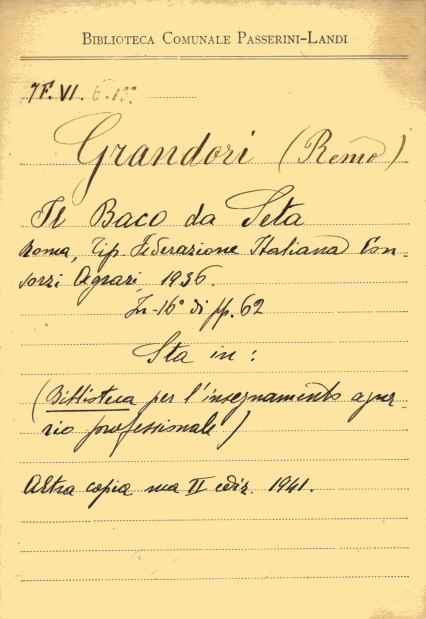 BIBLIOTECA COMUNALE PASSERINI-LANDI
7F.VI. 6.18°
Grandori (Remo)
Il Baco da Seta
Roma, Tip. Federazione Italiana Con-
sorzi Agrari, 1936.
In-16° di pp. 62
Sta in:
(Biblioteca per l'insegnamento agra-
rio professionale)
Altra copia ma II ediz. 1941.